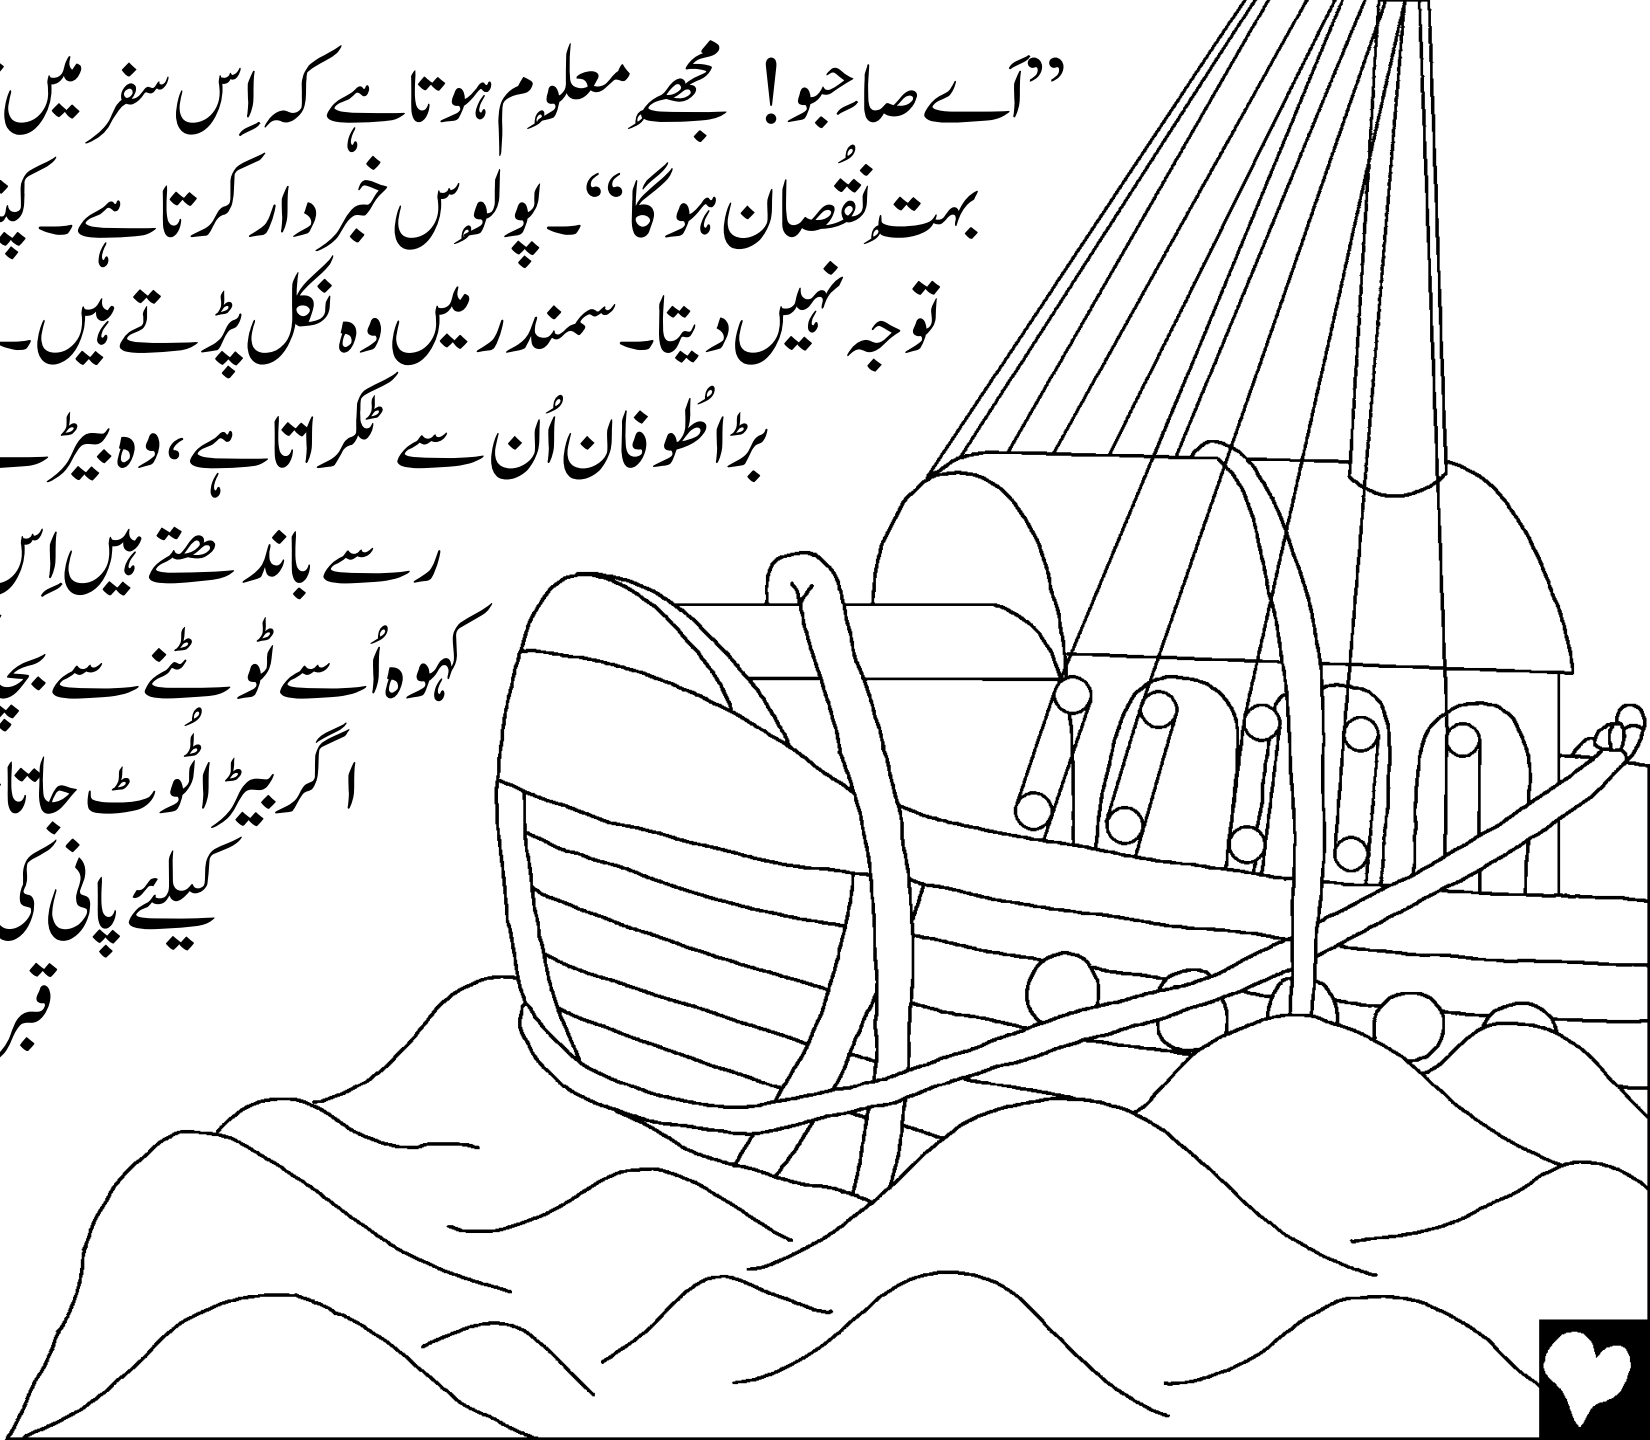 ”اَے صاحِبو! مُجھے معلوُم ہوتا ہے کہ اِس سفر میں
بہت نُقصان ہو گا“۔ پولوُس خبردار کرتا ہے۔
توجہ نہیں دیتا۔ سمندر میں وہ نکل پڑتے ہیں۔
بڑا طُوفان اُن سے ٹکراتا ہے، وہ بیڑے
رسے باندھتے ہیں اِس
کہ وہ اُسے ٹوٹنے سے
اگر بیڑا ٹُوٹ جاتا
کیلئے پانی کی
قبر